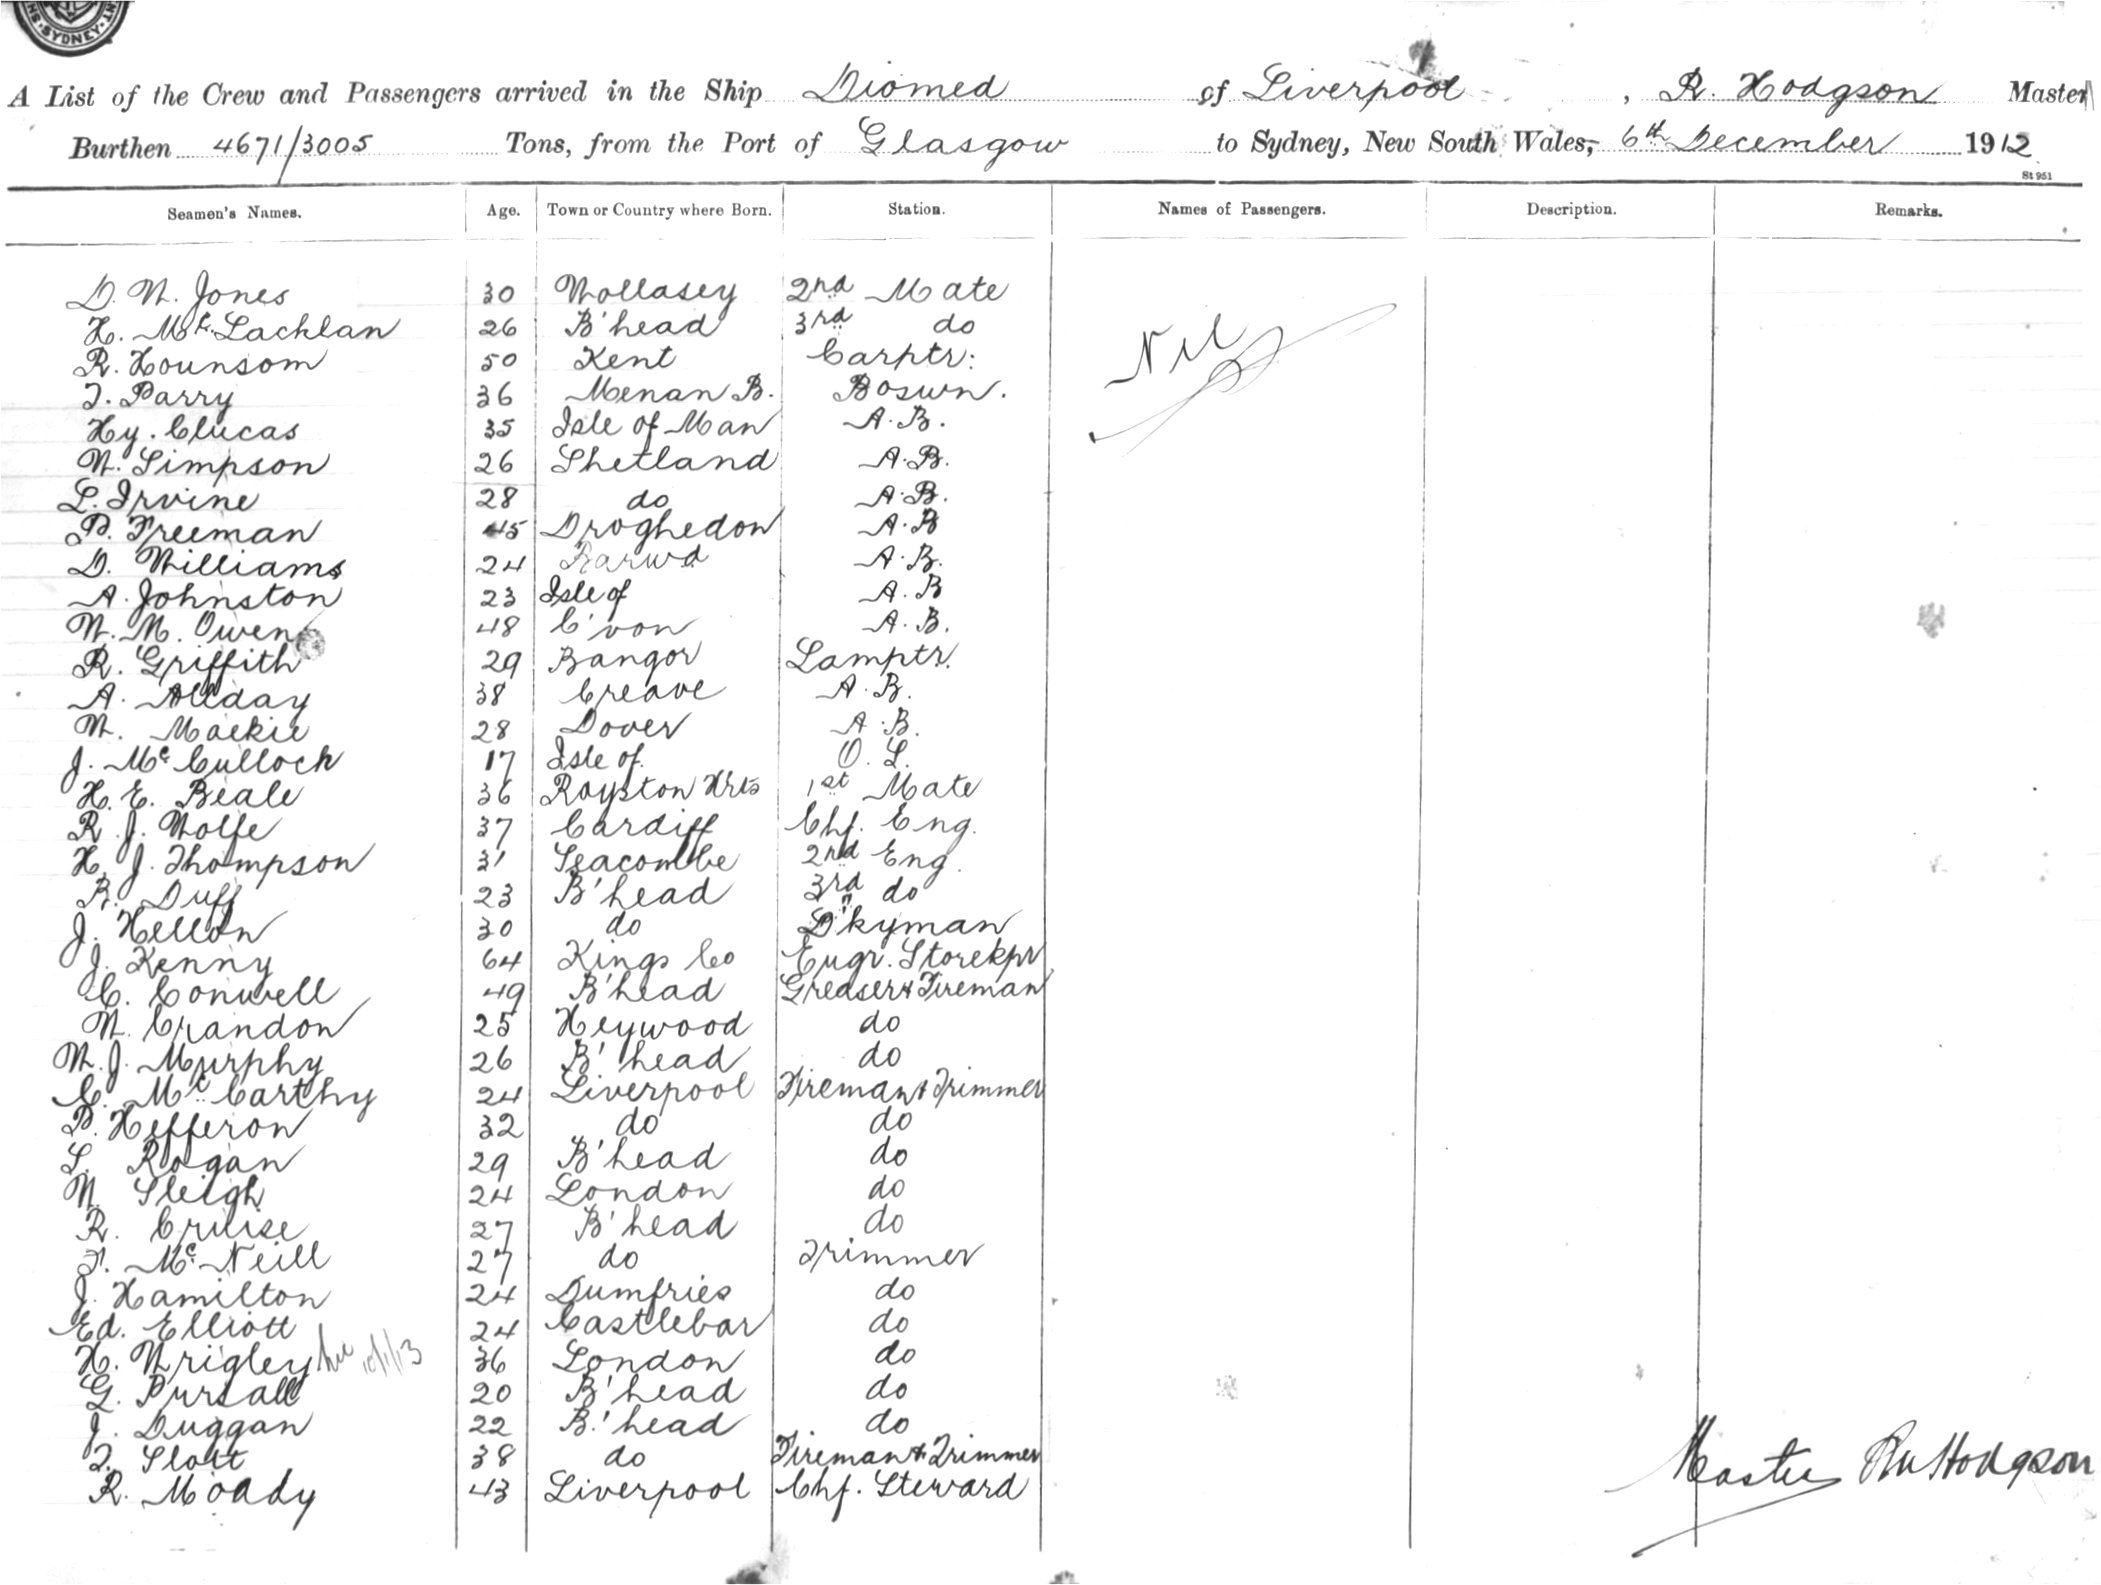 SYDNEY
A List of the Crew and Passengers arrived in the Ship Diomed of Liverpool, R. Hodgson Master
Burthen 4671/3005 Tons, from the Port of Glasgow to Sydney, New South Wales, 6th December 1912
St 951
Seamen's Names. Age. Town or Country where Born. Station. Names of Passengers. Description. Remarks.
D. W. Jones 30 Wollasey 2nd Mate
H. McLachlan 26 B'head 3rd do
Nil
R. Hounsom 50 Kent Carptr:
T. Parry 36 Menan B. Boswn.
Hy. Clucas 35 Isle of Man A.B.
W. Simpson 26 Shetland A.B.
L. Irvine 28 do A.B.
P. Freeman 45 Droghedon A.B
D. Williams 24 Barwd A.B.
A. Johnston 23 Isle of A.B
W. M. Owen 48 C'von A.B.
R. Griffith 29 Bangor Lamptr.
A. Allday 38 Creave A.B.
W. Mackie 28 Dover A.B.
J. McCulloch 17 Isle of O.S.
H. E. Beale 36 Royston Hrts 1st Mate
R. J. Wolfe 37 Cardiff Chf. Eng.
H. J. Thompson 31 Seacombe 2nd Eng.
R. Duff 23 B'head 3rd do
J. Hellon 30 do D'kyman
J. Kenny 64 Kings Co Eugr. Storekpr
C. Conwell 49 B'head Greaser & Fireman
W. Crandon 25 Heywood do
W. J. Murphy 26 B'head do
C. McCarthy 24 Liverpool Fireman & Trimmer
P. Hefferon 32 do do
S. Rogan 29 B'head do
W. Sleigh 24 London do
R. Cruise 27 B'head do
F. McNeill 27 do Trimmer
J. Hamilton 24 Dumfries do
Ed. Elliott 24 Castlebar do
H. Wrigley 10/1/13 36 London do
G. Pursall 20 B'head do
J. Duggan 22 B.'head do
T. Slott 38 do Fireman & Trimmer
Master RW Hodgson
R. Moady 43 Liverpool Chf. Steward